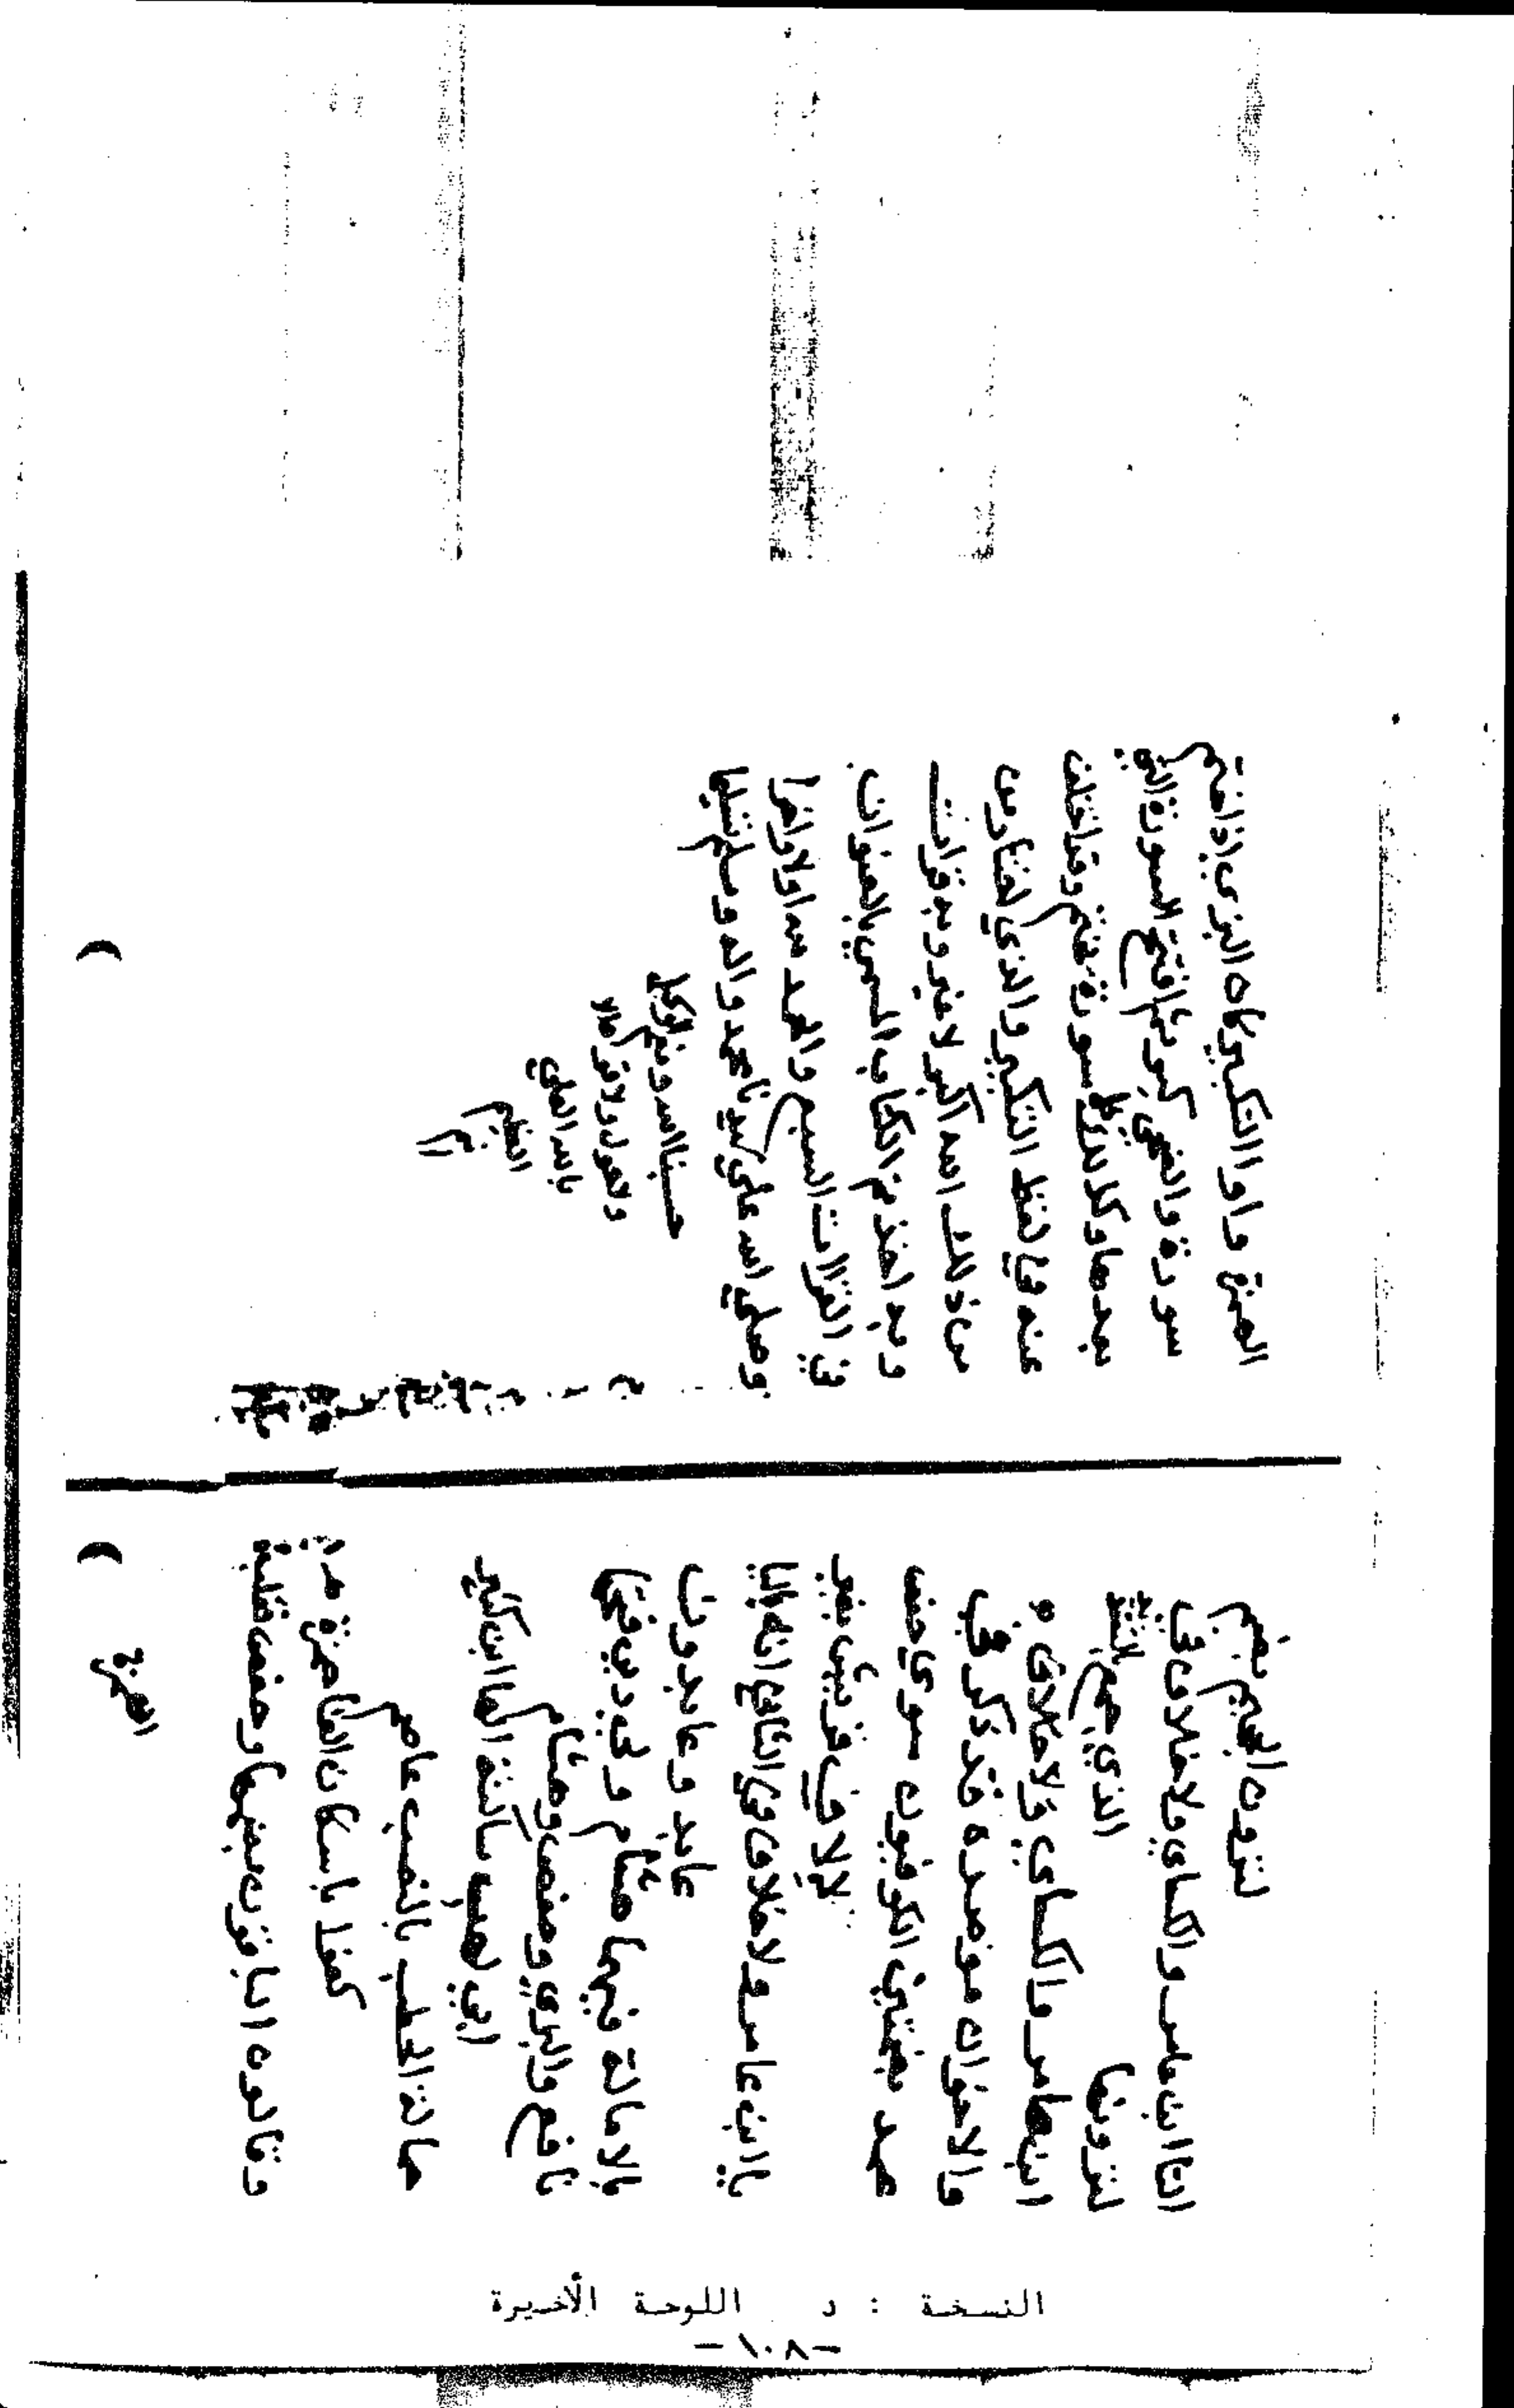 لترون الجحيم بضم
التا ابن عامر والكساي ولا خلاف في
لترونها الذي جمع بالتشديد
ابن عامر والكساي ولا خلاف
والاخوان موصدة قد ذكر في
عمد بضمتين الكوفيون سوى حفص
لإلاف قريش بغير
يا ابن عامر ولا خلاف في الثاني انه باليا
عابد وعابدون
بالامالة فيهما هشام ولي دين فتحها
نافع والبزي وحفص وهشام
ابي لهب ساكنة الها ابن كثير
حمالة الحطب بالنصب عاصم
كفوا باسكان الفا حمزة
وقالون
الهمزة
الهمزة واوا التكبير كان البزي إذا ختم
سورة والضحى كبر ثم افتتح السورة التي
بعدها وكلما سورة ختم وقد اختلف
عنه في لفظ التكبير والذي اختاره من
من ذلك الله اكبر لا غير وبه قرات
وبه اخذ تم الكتاب المسمى بالعنوان
في القراات السبع والحمد لله اولا واخرا
وصلى الله على سيدنا محمد واله وسلم تسليما
حسبنا الله ونعم الوكيل
ولا حول ولا قوة الا
بالله العلي
العظيم
النسخة : د اللوحة الأخيرة
-١٠٨-